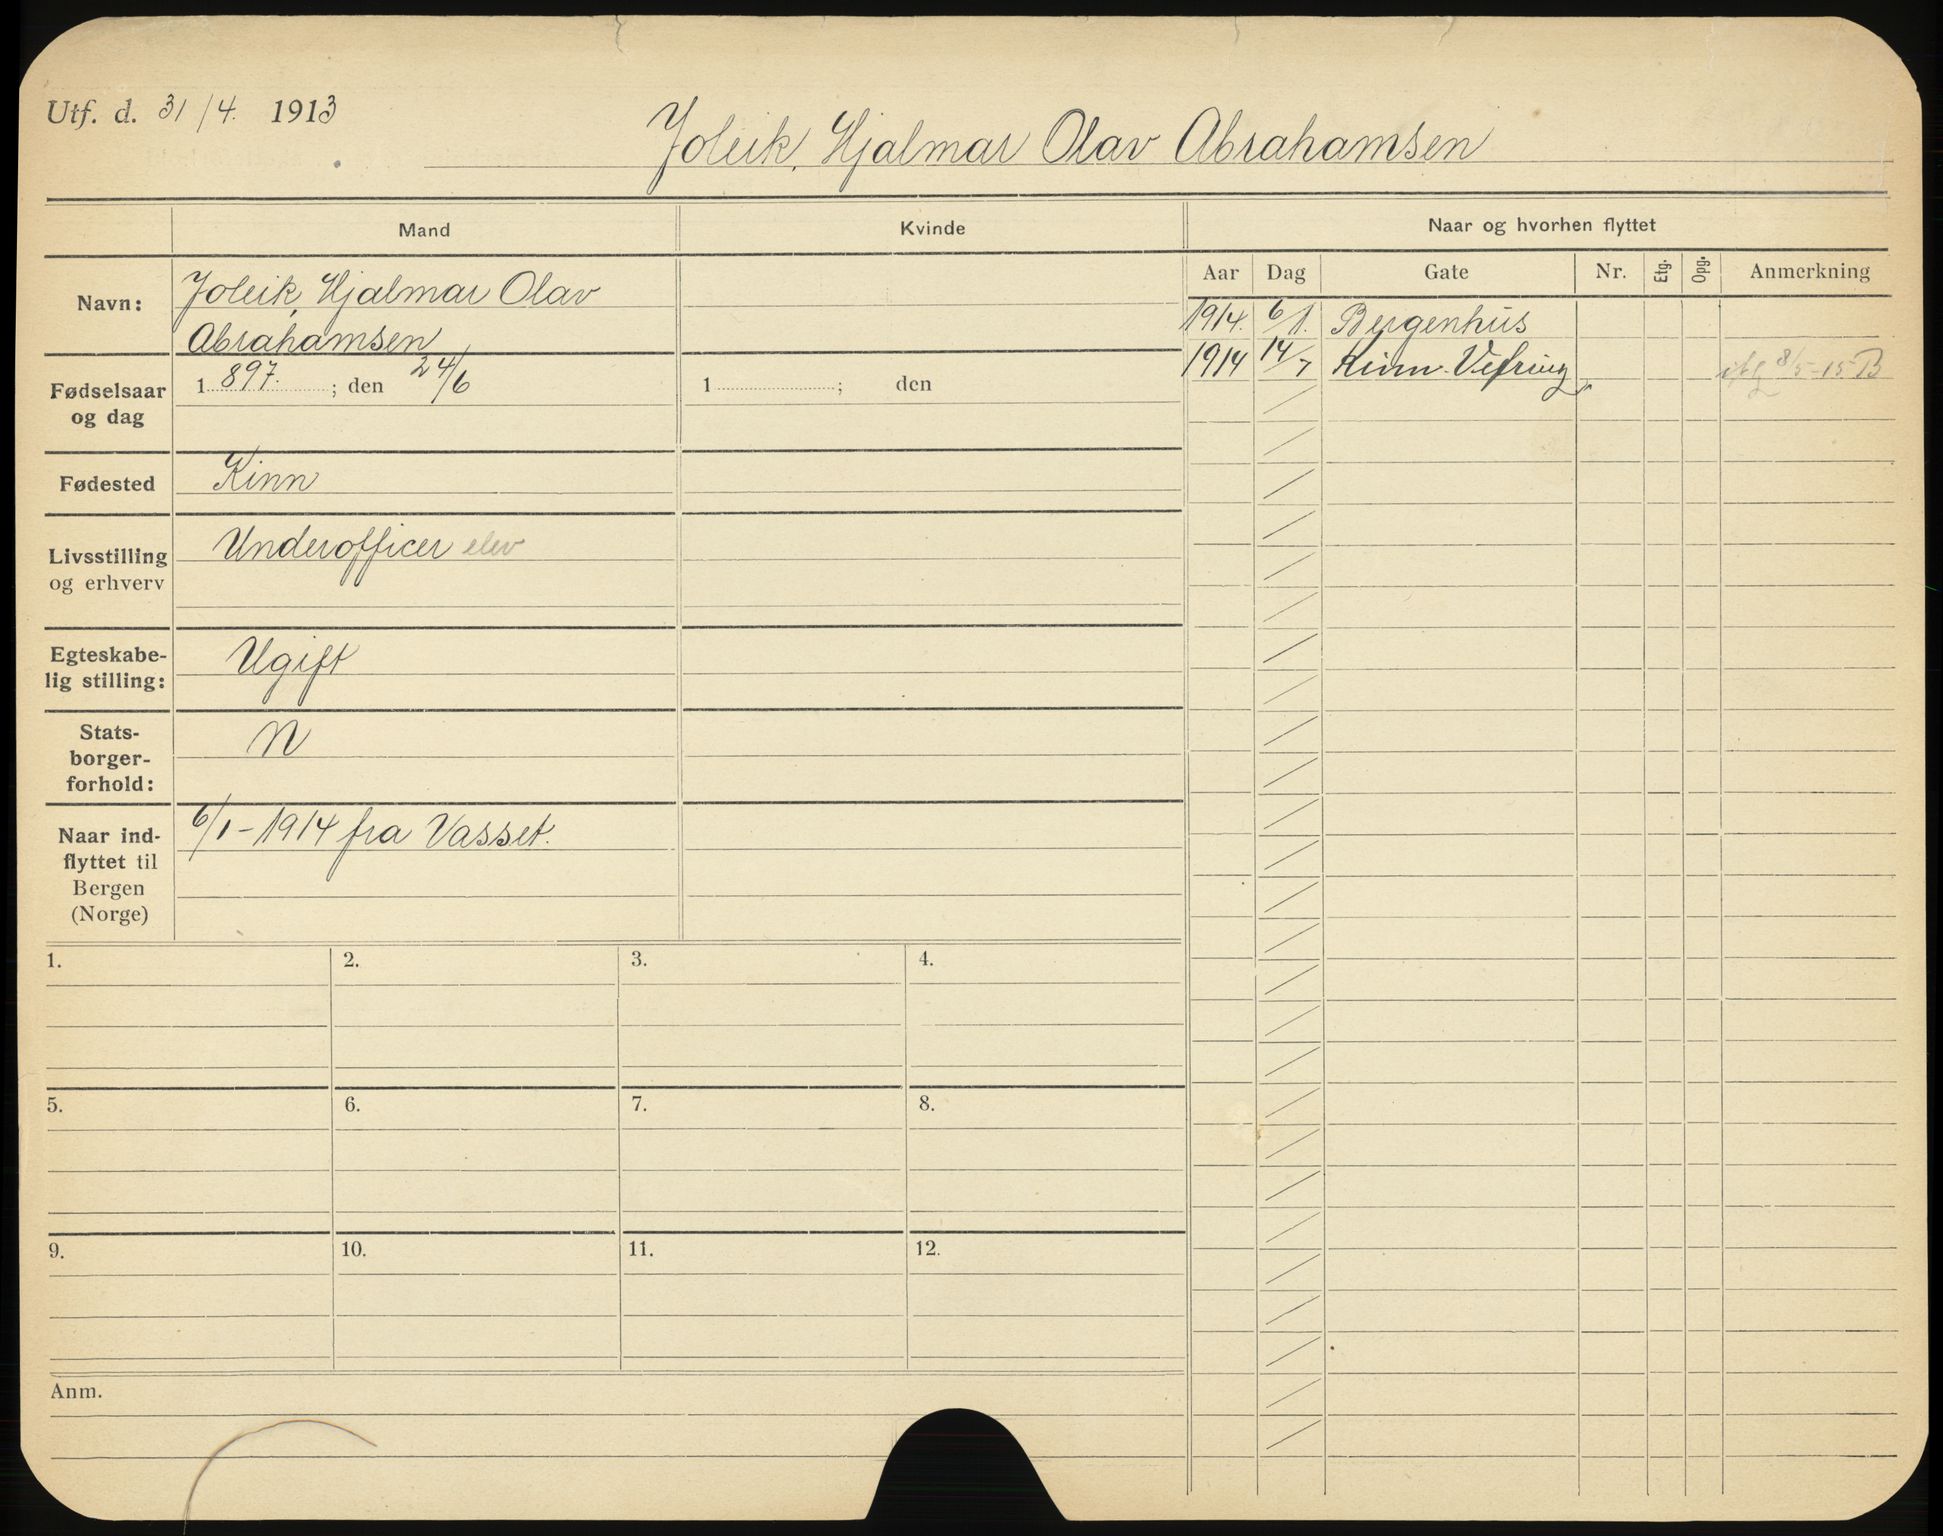 Utf. d. 31/4. 1913
Joleik, Hjalmar Olav Abrahamsen
Mand
Kvinde
Naar og hvorhen flyttet
Aar Dag Gate Nr. Etg. Opg. Anmerkning
Navn: Joleik, Hjalmar Olav
Abrahamsen
1914. 6/1. Bergenhus
1914 14/7 Kinn. Vefring
8/5-15 B
Fødselsaar
og dag
1897. ; den 24/6
1 ; den
Fødested Kinn
Livsstilling
og erhverv
Underofficer elev
Egteskabe-
lig stilling:
Ugift
Stats-
borger-
forhold:
N
Naar ind-
flyttet til
Bergen
(Norge)
6/1-1914 fra Vasset.
1. 2. 3. 4.
5. 6. 7. 8.
9. 10. 11. 12.
Anm.